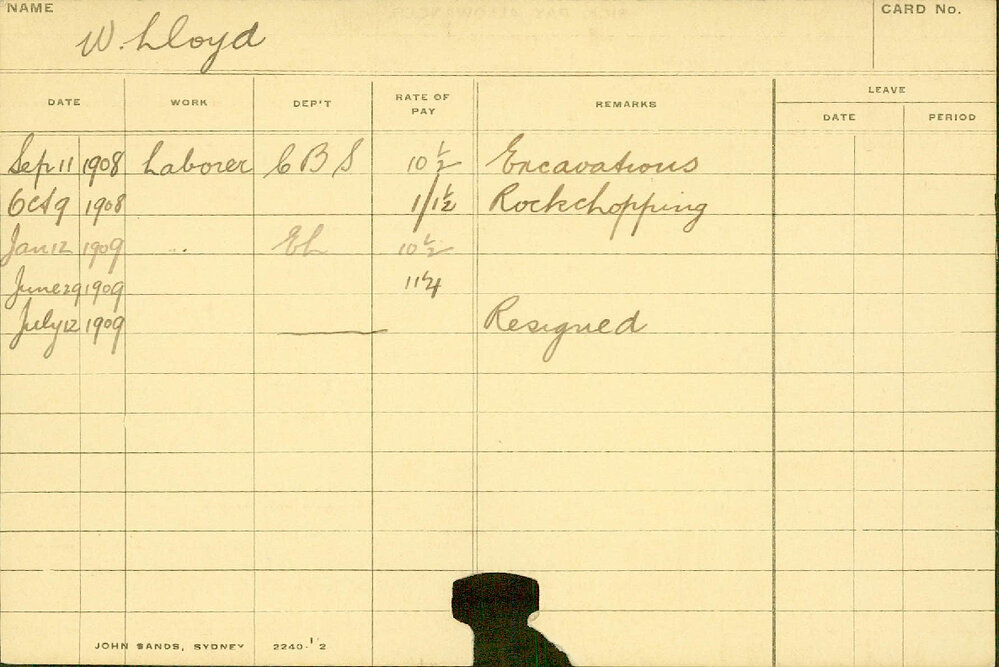 NAME CARD No.
W. Lloyd
DATE WORK DEP'T RATE OF PAY REMARKS LEAVE
DATE PERIOD
Sep 11 1908 Laborer CBS 10 1/2 Excavations
Oct 9 1908 1/1 1/2 Rockchopping
Jan 12 1909 " EL 10 1/2
June 29 1909 11 1/4
July 12 1909 Resigned
JOHN SANDS, SYDNEY 2240-12